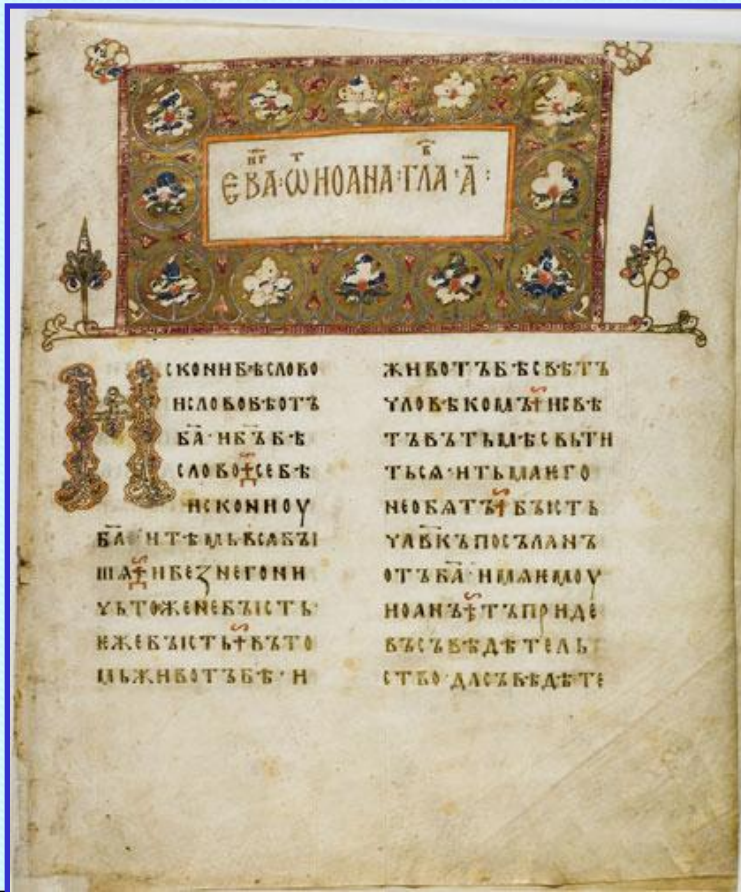 ЄВАⷩ҇ⷢ·Ѡⷮ ИОАНА·ГЛАⷡ҇·А҃:
ИСКОНИБѢСЛОВО
ИСЛОВОБѢОТЪ
БА҃·ИБЪ҃БѢ
СЛОВО✝СЕБѢ
ИСКОНИОУ
БА҃✝ИТѢМЬВСꙖБЪІ
ШѦ✝ИБЕЗНЕГОНИ
ЧЬТОЖЕНЕБЪІСТЬ·
ѤЖЕБЪІСТЬ✝ВЪТО
МЬЖИВОТЪБѢ·И
ЖИВОТЪБѢСВѢТЪ
ЧЛОВѢКОМЪ✝ИСВѢ
ТЪВЪТЬМѢСВЬТИ
ТЬСѦ·ИТЬМАѤГО
НЕОБѦТЪ✝БЪІСТЬ
ЧЛВ҃КЪПОСЪЛАНЪ
ОТЪБА҃·ИМѦѤМОУ
ИОАНЪ✝ТЪПРИДЕ
ВЪСЪВѢДѢТЕЛЬ
СТВО·ДАСЪВѢДѢТЕ